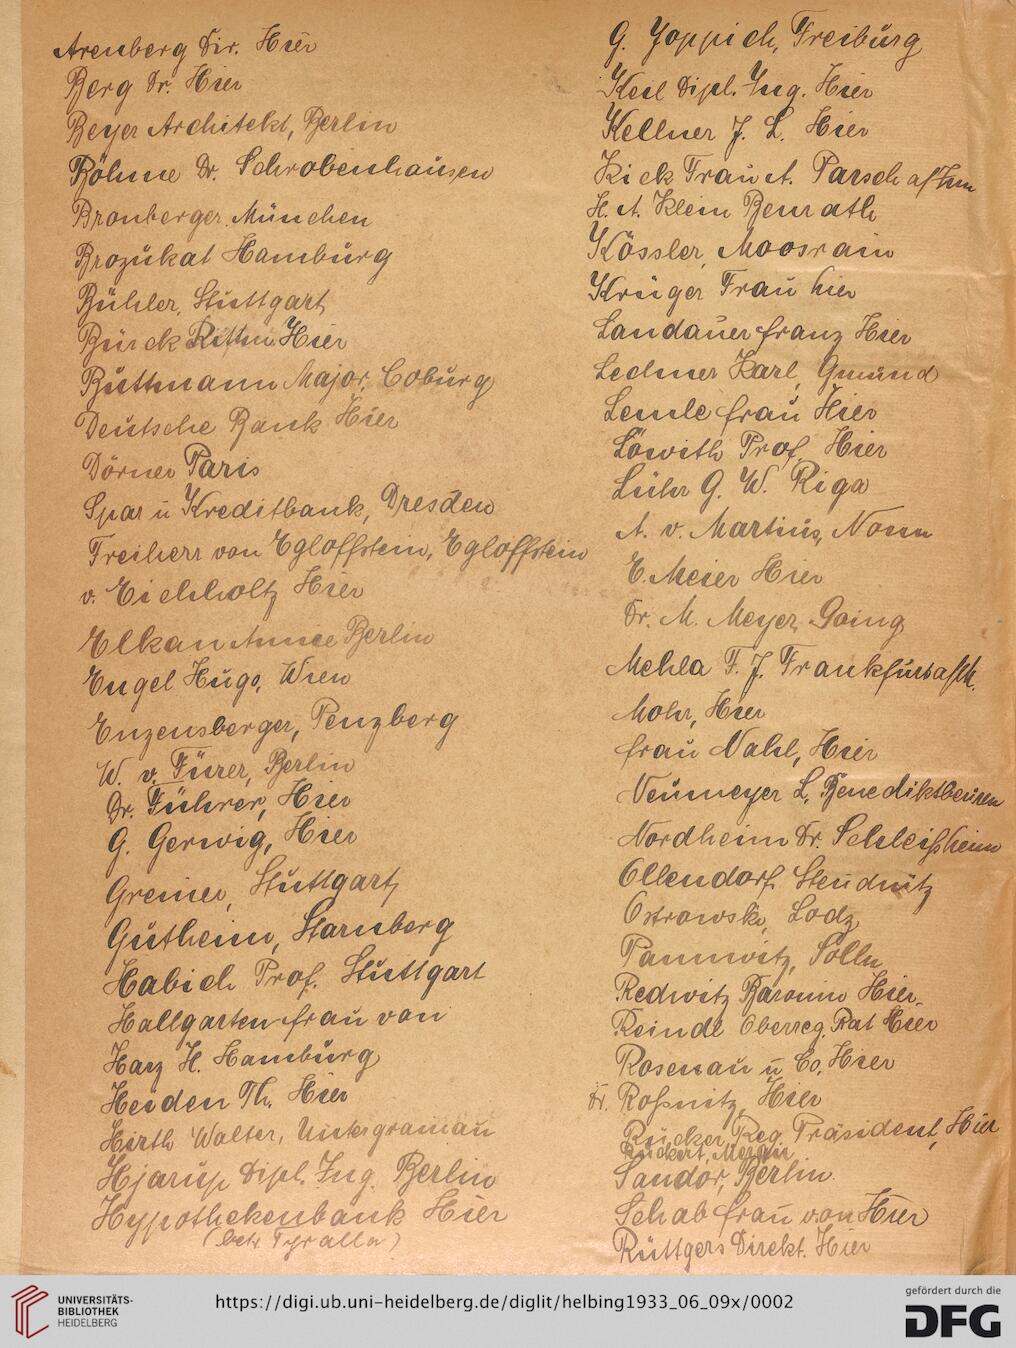 Arenberg Dir. Hier
Berg Dr. Hier
Beyer Architekt, Berlin
Böhme Dr. Schrobenhausen
Bronberger München
Brozukat Hamburg
Bühler, Stuttgart
Bürck Rittm. Hier
Buttmann Major, Coburg
Deutsche Bank Hier
Dörner Paris
Spar u Kreditbank, Dresden
Freiherr von Egloffstein, Egloffstein
v. Eichholtz Hier
Elkan Berlin
Engel Hugo, Wien
Enzensberger, Penzberg
W. v. Fürer, Berlin
Dr. Führer, Hier
G. Gerwig, Hier
Greiner, Stuttgart
Gutheim, Starnberg
Habich Prof. Stuttgart
Hallgarten frau von
Harz H. Hamburg
Heiden Th. Hier
Hirth Walter, Untergrainau
Hjarup Dipl. Ing. Berlin
Hypothekenbank Hier
G. Joppich, Freiburg
Keil Dipl. Ing. Hier
Kellner J. L. Hier
Kick Frau A. Parsch
H. A. Klein Benrath
Kössler, Moosrain
Krüger Frau hier
Landauer franz Hier
Lechner Karl, Gmünd
Lemle frau Hier
Löwith Prof. Hier
Lühr G. W. Riga
A. v. Martius, Nonn
E. Meier Hier
Dr. M. Meyer Going
Mehla F. J. Frankfurt
Mohr, Hier
frau Nahl, Hier
Neumeyer L. Benediktbeuren
Nordheim Dr. Schleißheim
Ollendorf Steudnitz
Ostrowski, Lodz
Pannwitz, Solln
Redwitz Baronin Hier
Reindl Oberreg. Rat Hier
Rosenau u Co, Hier
Dr. Roßnitz, Hier
Rücker, Reg. Präsident, Hier
Rückert, Meran
Sandor, Berlin
Schab frau von Hier
Rüttgers Direkt. Hier
UNIVERSITÄTS-
BIBLIOTHEK
HEIDELBERG
https://digi.ub.uni-heidelberg.de/diglit/helbing1933_06_09x/0002
gefördert durch die
DFG